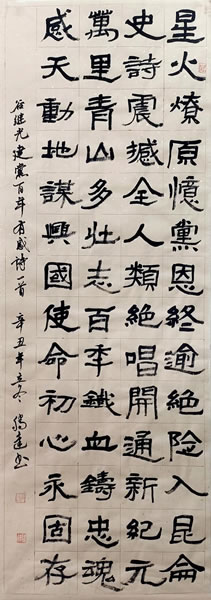 星火燎原憶黨恩終逾絕險入昆侖
史詩震撼全人類絕唱開通新紀元
萬里青山多壯志百年鐵血鑄忠魂
感天動地謀興國使命初心永固存
继光建黨百年有感诗一首 辛丑年立冬 书